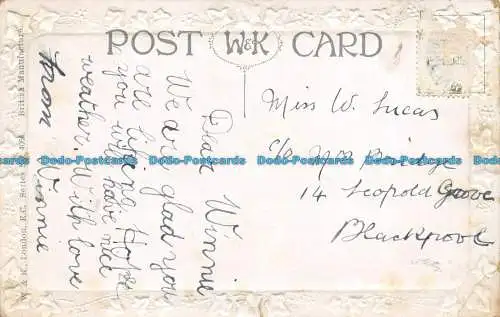 POST W&K CARD
W. & K., London, E.C. Series No. 4074 British Manufacture.
Dear Winnie
We are glad you
are Hope
you will have nice
weather. With love
from Winnie
Miss W. Lucas
c/o Mrs
14 Leopold Grove
Blackpool
Dodo-Postcards Dodo-Postcards Dodo-Postcards Dodo-Postcards Dodo-Postcards